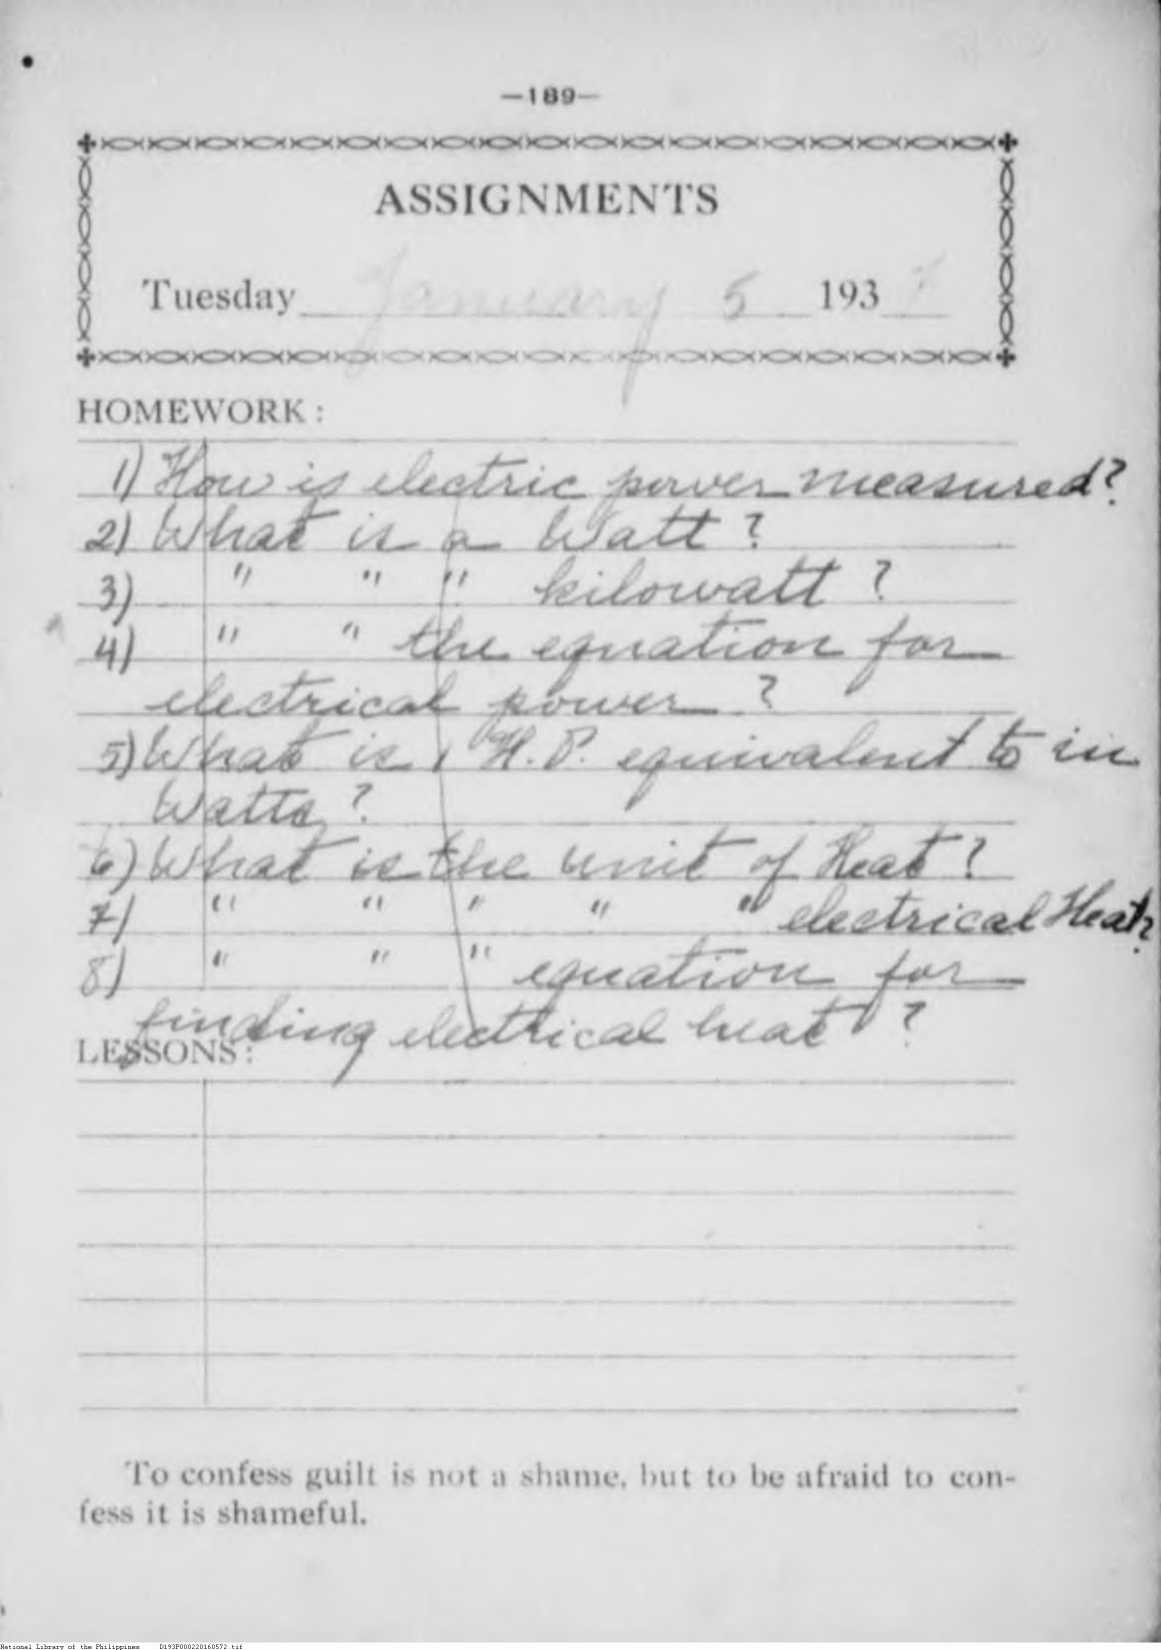 —189—
ASSIGNMENTS
Tuesday January 5 1937
HOMEWORK :
1) How is electric power measured?
2) What is a Watt ?
3) " " " kilowatt ?
4) " " the equation for
electrical power ?
5) What is 1 H.P. equivalent to in
Watts ?
6) What is the unit of Heat ?
7) " " " " " electrical Heat?
8) " " " equation for
finding electrical heat ?
LESSONS :
To confess guilt is not a shame, but to be afraid to con-
fess it is shameful.
National Library of the Philippines D193P000220160572.tif